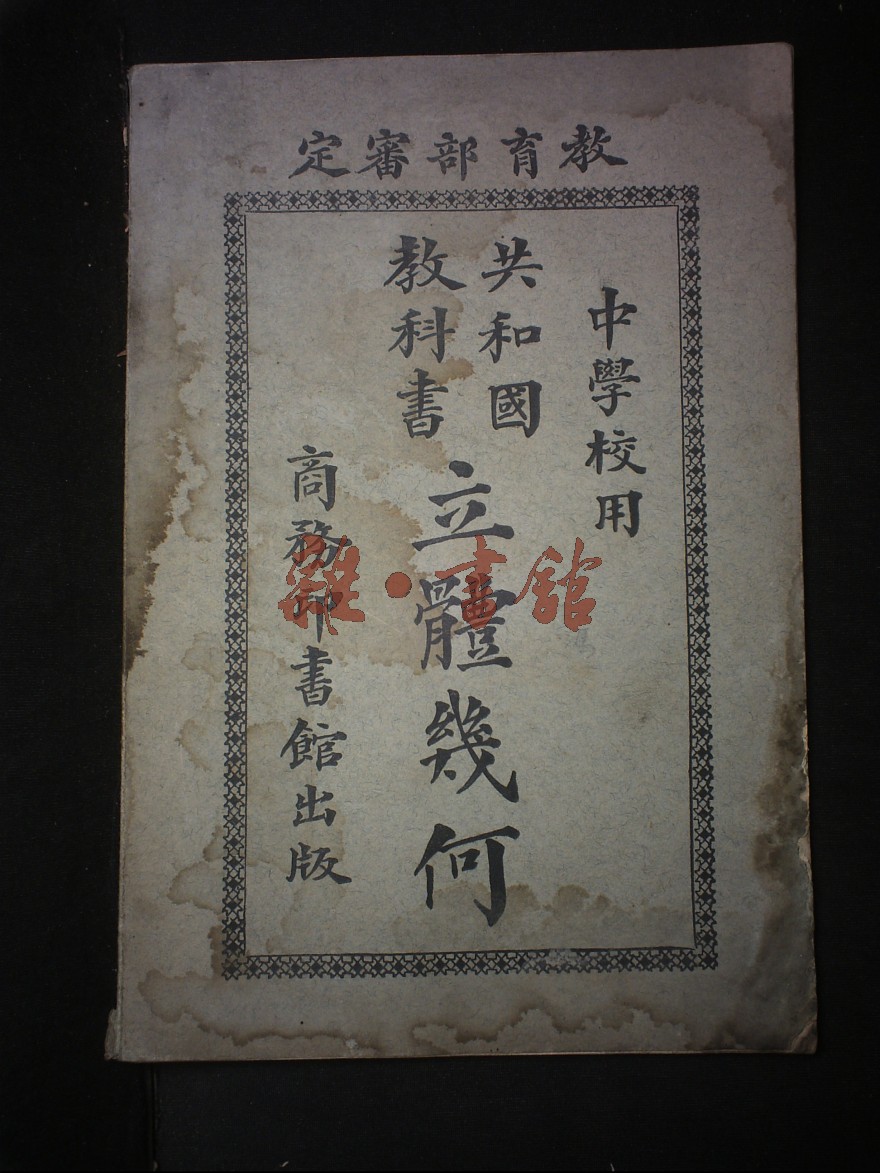 教育部審定
中學校用
共和國
教科書
立體幾何
商務印書館出版
雜·書館